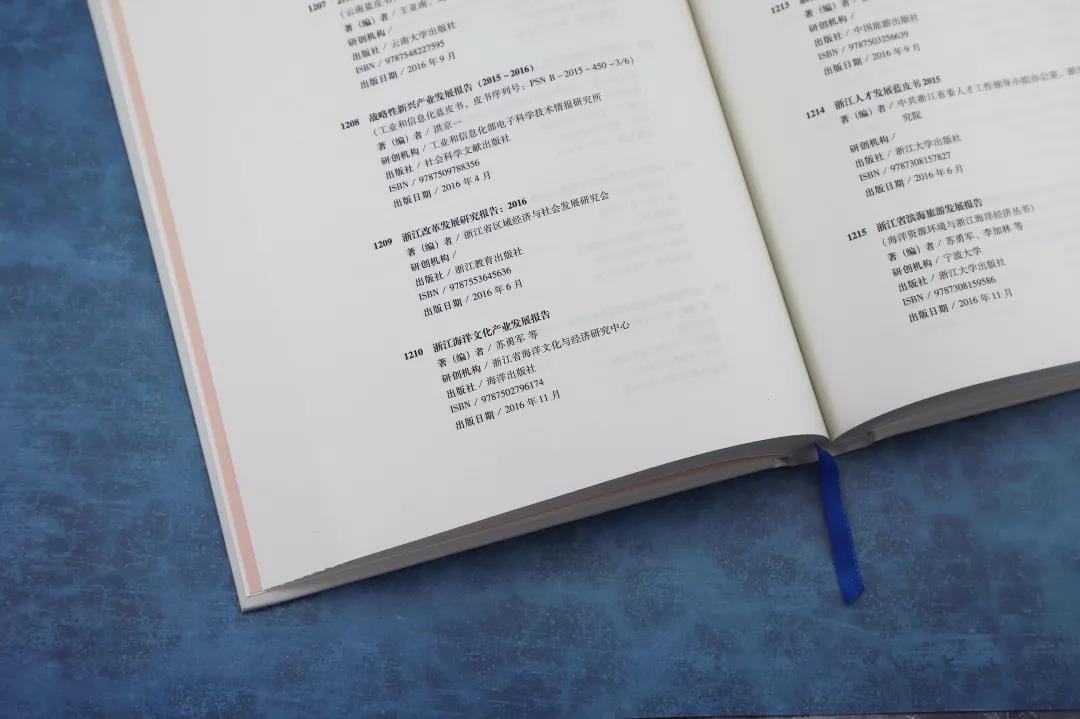 1207
(云南蓝皮书
著（编）者 / 王亚南、
研创机构 /
出版社 / 云南大学出版社
ISBN / 9787548227595
出版日期 / 2016 年 9 月
1208 战略性新兴产业发展报告（2015－2016）
（工业和信息化蓝皮书，皮书序列号：PSN B－2015－450－3/6）
著（编）者 / 洪京一
研创机构 / 工业和信息化部电子科学技术情报研究所
出版社 / 社会科学文献出版社
ISBN / 9787509788356
出版日期 / 2016 年 4 月
1209 浙江改革发展研究报告：2016
著（编）者 / 浙江省区域经济与社会发展研究会
研创机构 /
出版社 / 浙江教育出版社
ISBN / 9787553645636
出版日期 / 2016 年 6 月
1210 浙江海洋文化产业发展报告
著（编）者 / 苏勇军 等
研创机构 / 浙江省海洋文化与经济研究中心
出版社 / 海洋出版社
ISBN / 9787502796174
出版日期 / 2016 年 11 月
1213
著（编）者 /
研创机构 /
出版社 / 中国旅游出版社
ISBN / 9787503256639
出版日期 / 2016 年 9 月
1214 浙江人才发展蓝皮书2015
著（编）者 / 中共浙江省委人才工作领导小组办公室、浙江
究院
研创机构 /
出版社 / 浙江大学出版社
ISBN / 9787308157827
出版日期 / 2016 年 6 月
1215 浙江省滨海旅游发展报告
（海洋资源环境与浙江海洋经济丛书）
著（编）者 / 苏勇军、李加林 等
研创机构 / 宁波大学
出版社 / 浙江大学出版社
ISBN / 9787308159586
出版日期 / 2016 年 11 月